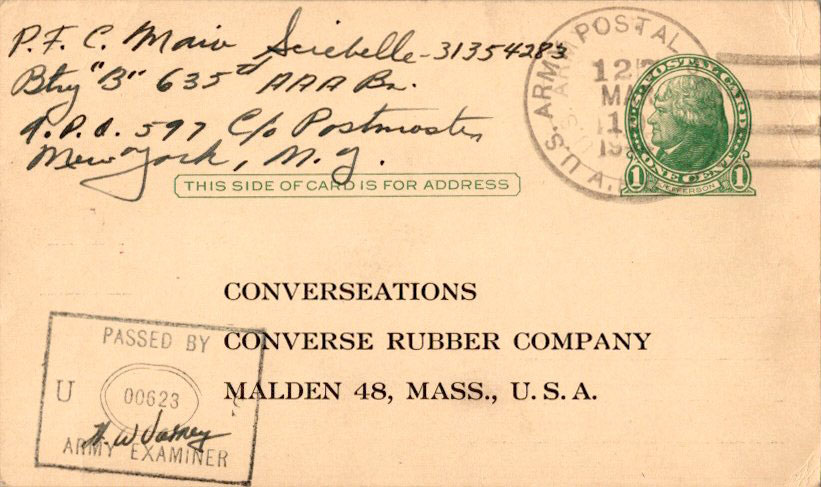 P.F.C. Mario Scirebelle-31354283
Btry "B" 635th AAA Bn.
A.P.O. 597 C/o Postmaster
New York, N.Y.
U.S. ARMY POSTAL
12
MA
1
19
U.S. POSTAL CARD
1 ONE CENT 1
JEFFERSON
THIS SIDE OF CARD IS FOR ADDRESS
CONVERSEATIONS
CONVERSE RUBBER COMPANY
MALDEN 48, MASS., U. S. A.
PASSED BY
U 00623 S
ARMY EXAMINER